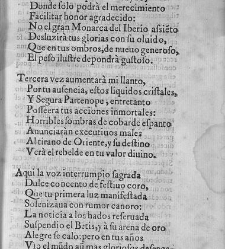 Donde solo podrà el merecimiento
Facilitar honor agradecido:
No el gran Monarca del Iberio asiẽto
Desluzirà tus glorias con su oluido,
Que en tus ombros, de nueuo generoso,
El peso ilustre depondrà gustoso.
Tercera vez aumentarà mi llanto,
Por tu ausencia, estos liquidos cristales,
Y Segura Partenope, entretanto
Posseera tus acciones inmortales:
Horribles sombras de cobarde espanto
Anunciaràn executiuos males
Al tirano de Oriente, y su destino
Verà el rebelde en tu valor diuino.
Aqui la voz interrumpio sagrada
Dulce concento de festiuo coro,
Que tu primera luz manifestada
Solenizana con rumor canoro:
La noticia a los hados reseruada
Suspendio el Betis, y à su arena de oro
Alegre se calò: pero en tus años
Via el mũdo aũ mas glorioso